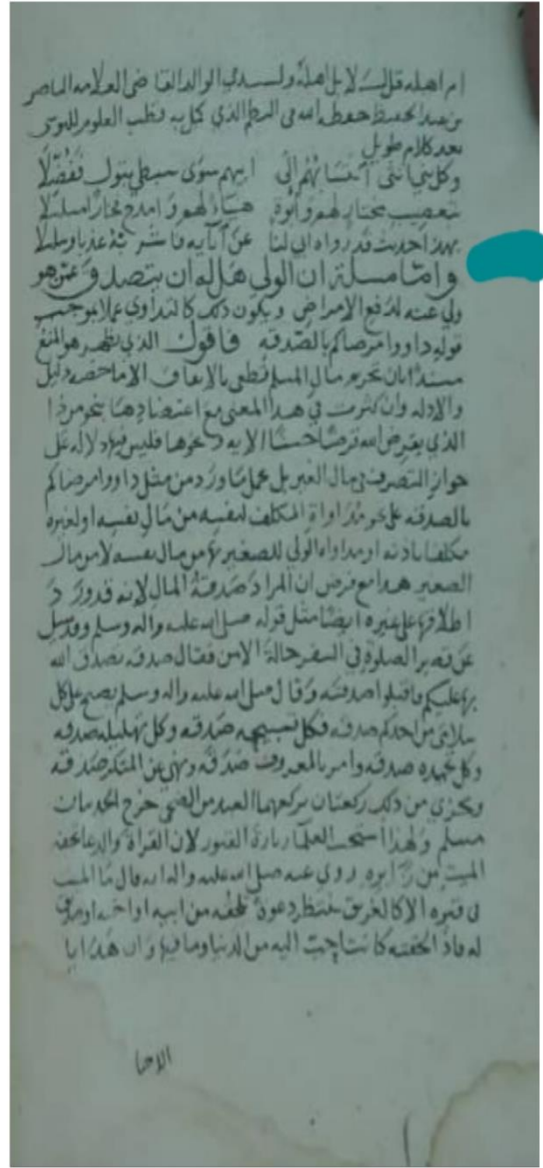 ام اهله قلت لا بل اهله ولسيدي الوالد القاضي العلامه الناصر
بن عبد الحفيظ حفظه الله في النظم الذي كمل به
بعد كلام طويل
وكل بني انثى انتسابهم الى ابيهم سوى سبطي بتول
بهذا حديث قد رواه ابي لنا عن آبايه
واما مسلة ان الولي هل له ان يتصدق عمن هو
ولي عنه لدفع الامراض ويكون ذلك كالتداوي عملا بموجب
قوله داووا مرضاكم بالصدقه فاقول الذي يظهر هو المنع
مستندا بان تحريم مال المسلم قطعي بالاتفاق الا ما خصه دليل
والادله وان كثرت في هذا المعنى مع اعتضادها بنحو من ذا
الذي يقرض الله قرضا حسنا الايه ونحوها فليس فيها دلاله على
جواز التصرف في مال الغير بل يحمل ما ورد من مثل داووا مرضاكم
بالصدقه على نحو مداواة المكلف لنفسه من مال نفسه او لغيره
مكلفا باذنه او مداواه الولي للصغير بها من مال نفسه لا من مال
الصغير هذا مع فرض ان المراد صدقة المال لانه قد ورد
اطلاقها على غيره ايضا مثل قوله صلى الله عليه واله وسلم وقد سيل
عن قصر الصلوة في السفر حالة الامن فقال صدقه تصدق الله
بها عليكم فاقبلوا صدقته وقال صلى الله عليه واله وسلم يصبح على كل
سلامى من احدكم صدقه فكل تسبيحه صدقه وكل تهليله صدقه
وكل تحميده صدقه وامر بالمعروف صدقه ونهي عن المنكر صدقه
ويجزي من ذلك ركعتان يركعهما العبد من الضحى خرج
مسلم ولهذا استحب العلما زيارة القبور لان القراة والدعا تحفه
الميت من زايره روي عنه صلى الله عليه واله انه قال ما الميت
في قبره الا كالغريق ينتظر دعوة تلحقه من ابيه او اخيه او صديق
له فاذا لحقته كانت احب اليه من الدنيا وما فيها وان هدايا
الاحيا